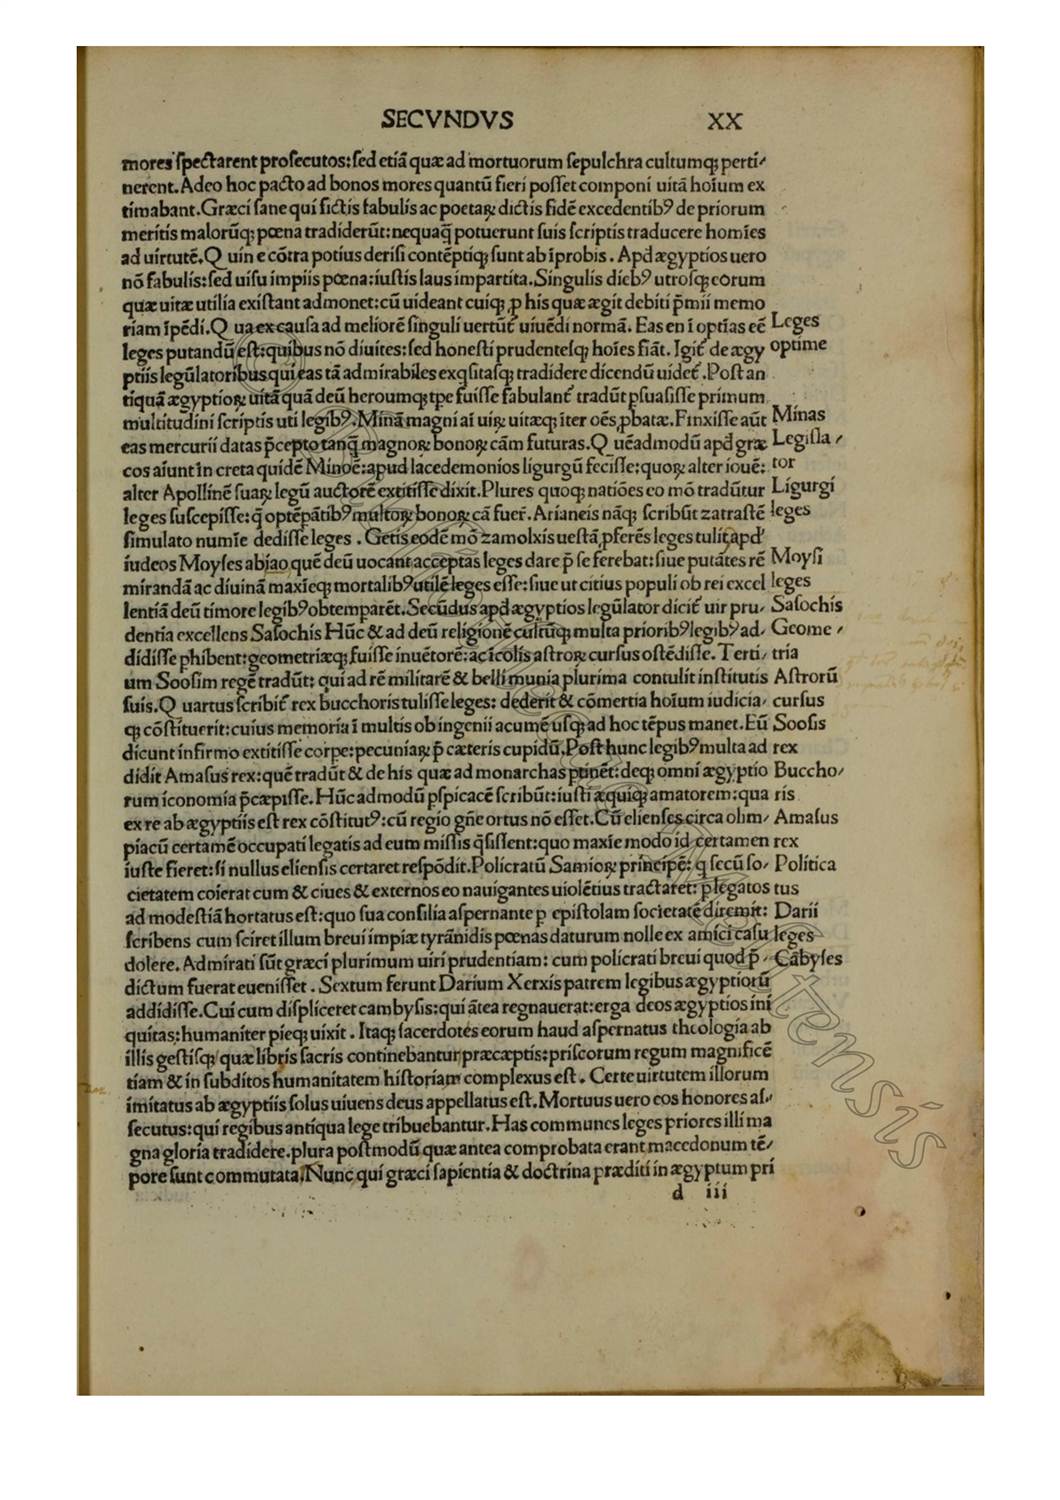 SECVNDVS XX
mores spectarent prosecutos: sed etiā quæ ad mortuorum sepulchra cultumq; perti⸗
nerent. Adeo hoc pacto ad bonos mores quantū fieri posset componi uitā hoīum ex
timabant. Græci sane qui fictis fabulis ac poetaꝝ dictis fidē excedentibꝰ de priorum
meritis malorūq; pœna tradiderūt: nequaq̄ potuerunt suis scriptis traducere homīes
ad uirtutē. Q uin e cōtra potius derisi contēptiq; sunt ab īprobis. Apd ægyptios uero
nō fabulis: sed uisu impiis pœna: iustis laus impartita. Singulis diebꝰ utrosq; eorum
quæ uitæ utilia existant admonet: cū uideant cuiq; ꝓ his quæ ægit debiti p̄mii memo
riam īpēdi. Q ua ex causa ad meliorē singuli uertūt̄ uiuēdi normā. Eas en ī optīas eē Leges
leges putandū est: quibus nō diuites: sed honesti prudentesq; hoīes fiāt. Igit̄ de ægy optime
ptiis legūlatoribus qui eas tā admirabiles exq̄sitasq; tradidere dicendū uidet̄. Post an
tiquā ægyptioꝝ uitā quā deū heroumq; tpe fuisse fabulant̄ tradūt ꝑsuasisse primum
multitudini scriptis uti legibꝰ. Minā magni aī uiꝝ uitæq; īter oēs ꝓbatæ. Finxisse aūt Minas
eas mercurii datas p̄cepto tanq̄ magnoꝝ bonoꝝ cām futuras. Q uēadmodū apd græ Legisla⸗
cos aiunt in creta quidē Minoē: apud lacedemonios ligurgū fecisse: quoꝝ alter iouē: tor
alter Apollinē suaꝝ legū auctorē extitisse dixit. Plures quoq; natiōes eo mō tradūtur Ligurgi
leges suscepisse: q̄ optēpātibꝰ multoꝝ bonoꝝ cā fuer̄. Arianeis nāq; scribūt zatrastē leges
simulato numīe dedisse leges. Getis eodē mō zamolxis uestā ꝓferēs leges tulit, apd'
iudeos Moyses ab jao quē deū uocant acceptas leges dare p̄ se ferebat: siue putātes rē Moysi
mirandā ac diuinā maxīeq; mortalibꝰ utilē leges esse: siue ut citius populi ob rei excel leges
lentiā deū timore legibꝰ obtemparēt. Secūdus apd ægyptios legūlator dicit̄ uir pru⸗ Sasochis
dentia excellens Sasochis Hūc & ad deū religionē cultūq; multa prioribꝰ legibꝰ ad⸗ Geome⸗
didisse phibent: geometriæq; fuisse inuētorē: ac īcolis astroꝝ cursus ostēdisse. Terti⸗ tria
um Soosim regē tradūt: qui ad rē militarē & belli munia plurima contulit institutis Astrorū
suis. Q uartus scribit̄ rex bucchoris tulisse leges: dederit & cōmertia hoīum iudicia⸗ cursus
q; cōstituerit: cuius memoria ī multis ob ingenii acumē usq; ad hoc tēpus manet. Eū Soosis
dicunt infirmo extitisse corpe: pecuniaꝝ p̄ cæteris cupidū. Post hunc legibꝰ multa ad rex
didit Amasus rex: quē tradūt & de his quæ ad monarchas ptinēt: deq; omni ægyptio Buccho⸗
rum iconomia p̄cæpisse. Hūc admodū pspicacē scribūt: iusti æquiq; amatorem: qua ris
ex re ab ægyptiis est rex cōstitutꝰ: cū regio gn̄e ortus nō esset. Cū elienses circa olim⸗ Amasus
piacū certamē occupati legatis ad eum missis q̄sissent: quo maxīe modo id certamen rex
iuste fieret: si nullus eliensis certaret respōdit. Policratū Samioꝝ principē: q secū so⸗ Politica
cietatem coierat cum & ciues & externos eo nauigantes uiolētius tractaret: p legatos tus
ad modestiā hortatus est: quo sua consilia aspernante p epistolam societatē diremit: Darii
scribens cum sciret illum breui impiæ tyrānidis pœnas daturum nolle ex amici casu leges
dolere. Admirati sūt græci plurimum uiri prudentiam: cum policrati breui quod p̄⸗ Cābyses
dictum fuerat euenisset. Sextum ferunt Darium Xerxis patrem legibus ægyptiorū
addidisse. Cui cum displiceret cambysis: qui ātea regnauerat: erga deos ægyptios ini
quitas: humaniter pieq; uixit. Itaq; sacerdotes eorum haud aspernatus theologia ab
illis gestisq; quæ libris sacris continebantur præcæptis: priscorum regum magnificē
tiam & in subditos humanitatem historiam complexus est. Certe uirtutem illorum
imitatus ab ægyptiis solus uiuens deus appellatus est. Mortuus uero eos honores as⸗
secutus: qui regibus antiqua lege tribuebantur. Has communes leges priores illi ma
gna gloria tradidere. plura postmodū quæ antea comprobata erant macedonum tē⸗
pore sunt commutata. Nunc qui græci sapientia & doctrina præditi in ægyptum pri
d iii